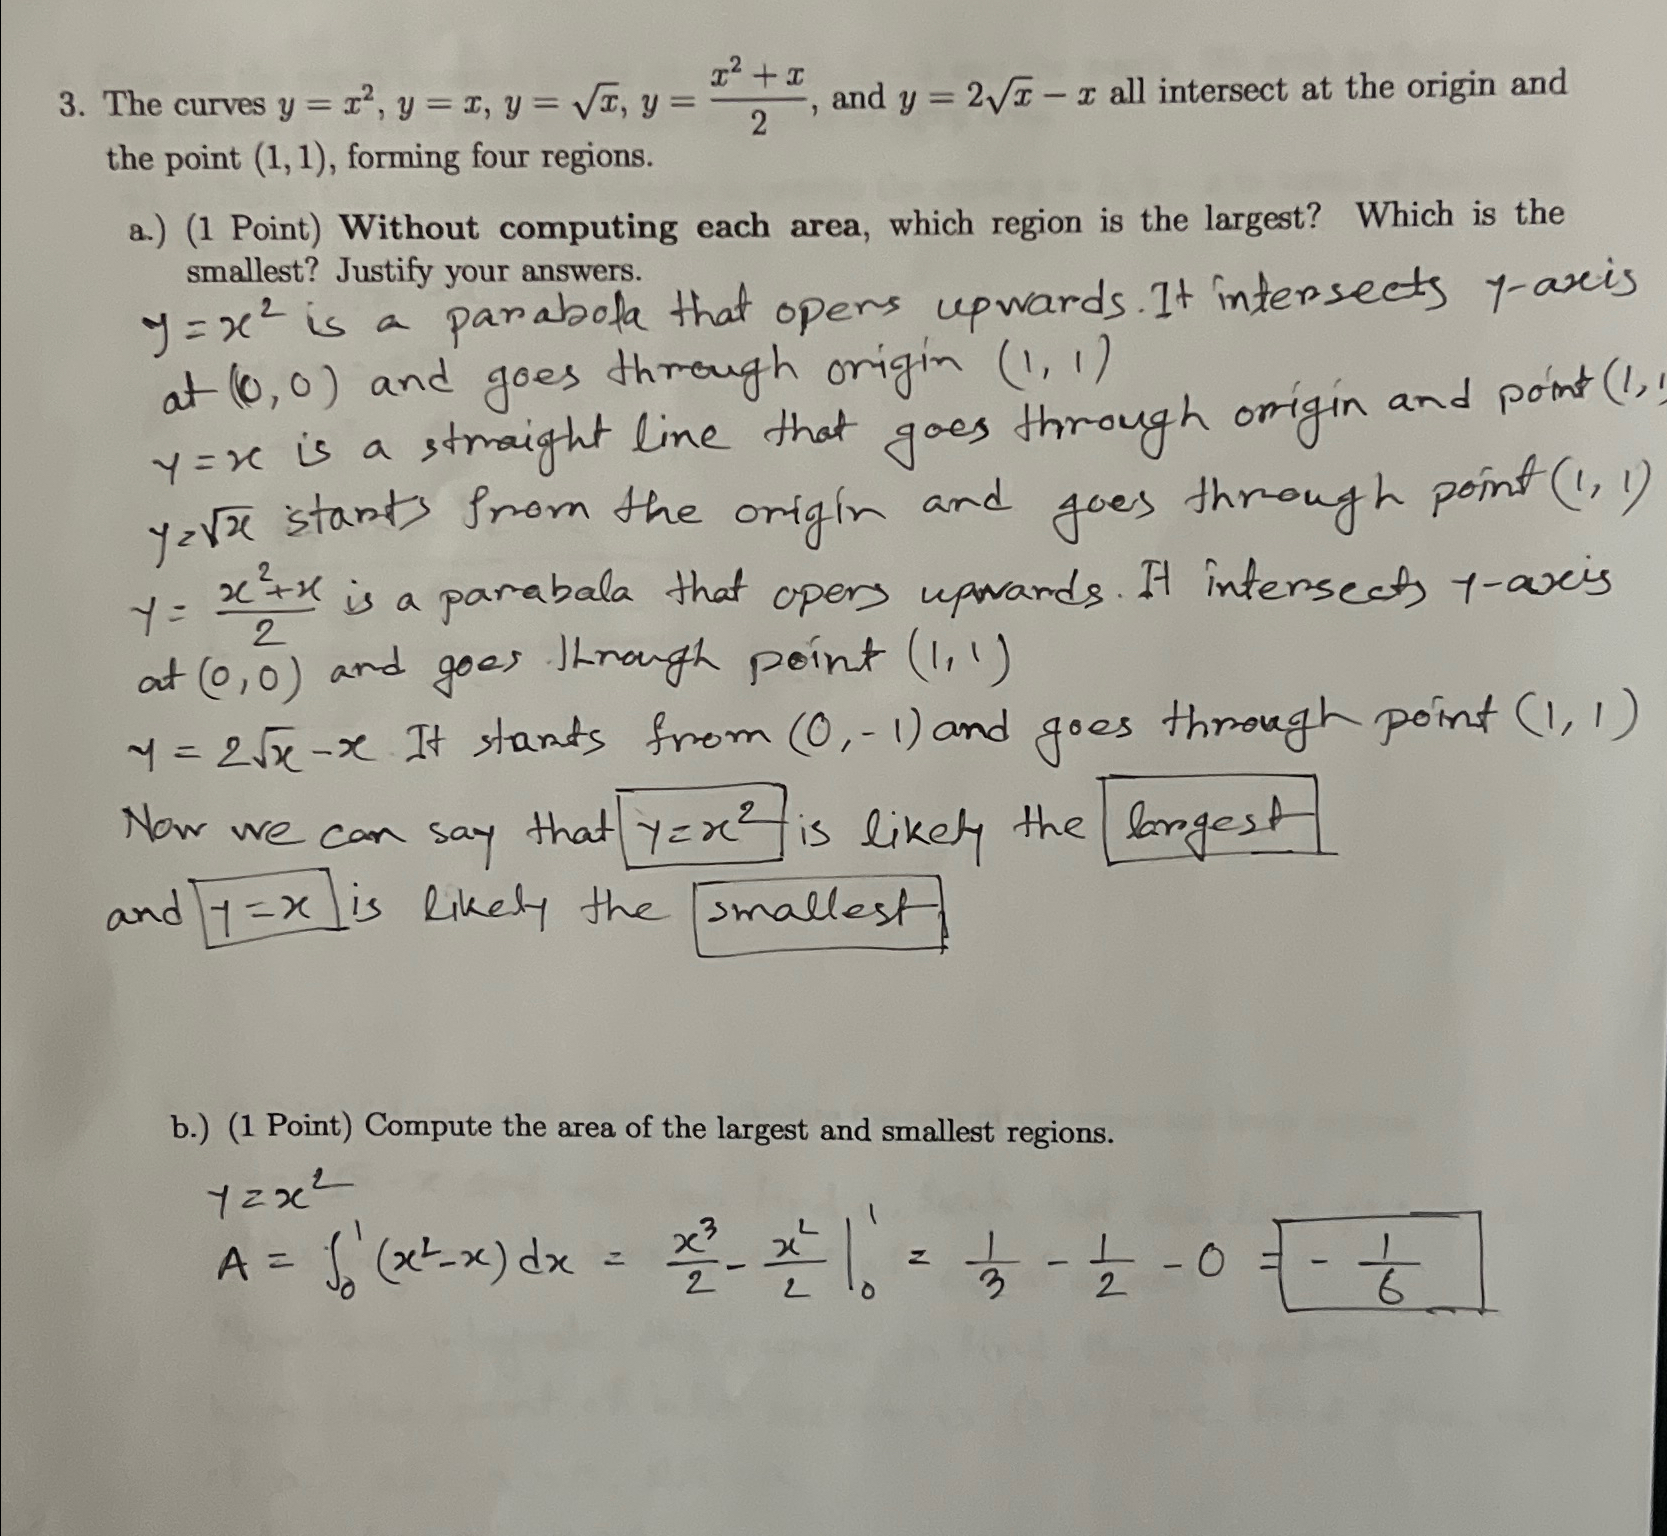 3. The curves y = x², y = x, y = √x, y = (x² + x)/2, and y = 2√x − x all intersect at the origin and
the point (1, 1), forming four regions.
a.) (1 Point) Without computing each area, which region is the largest? Which is the
smallest? Justify your answers.
y = x² is a parabola that opens upwards. It intersects y-axis
at (0, 0) and goes through origin (1, 1)
y = x is a straight line that goes through origin and point (1, 1
y = √x starts from the origin and goes through point (1, 1)
y = (x² + x)/2 is a parabala that opens upwards. It intersects y-axis
at (0, 0) and goes through point (1, 1)
y = 2√x − x It starts from (0, -1) and goes through point (1, 1)
Now we can say that y = x² is likely the largest
and y = x is likely the smallest
b.) (1 Point) Compute the area of the largest and smallest regions.
y = x²
A = ∫₀¹ (x² − x) dx = x³/2 − x²/2 |₀¹ = 1/3 − 1/2 − 0 = − 1/6